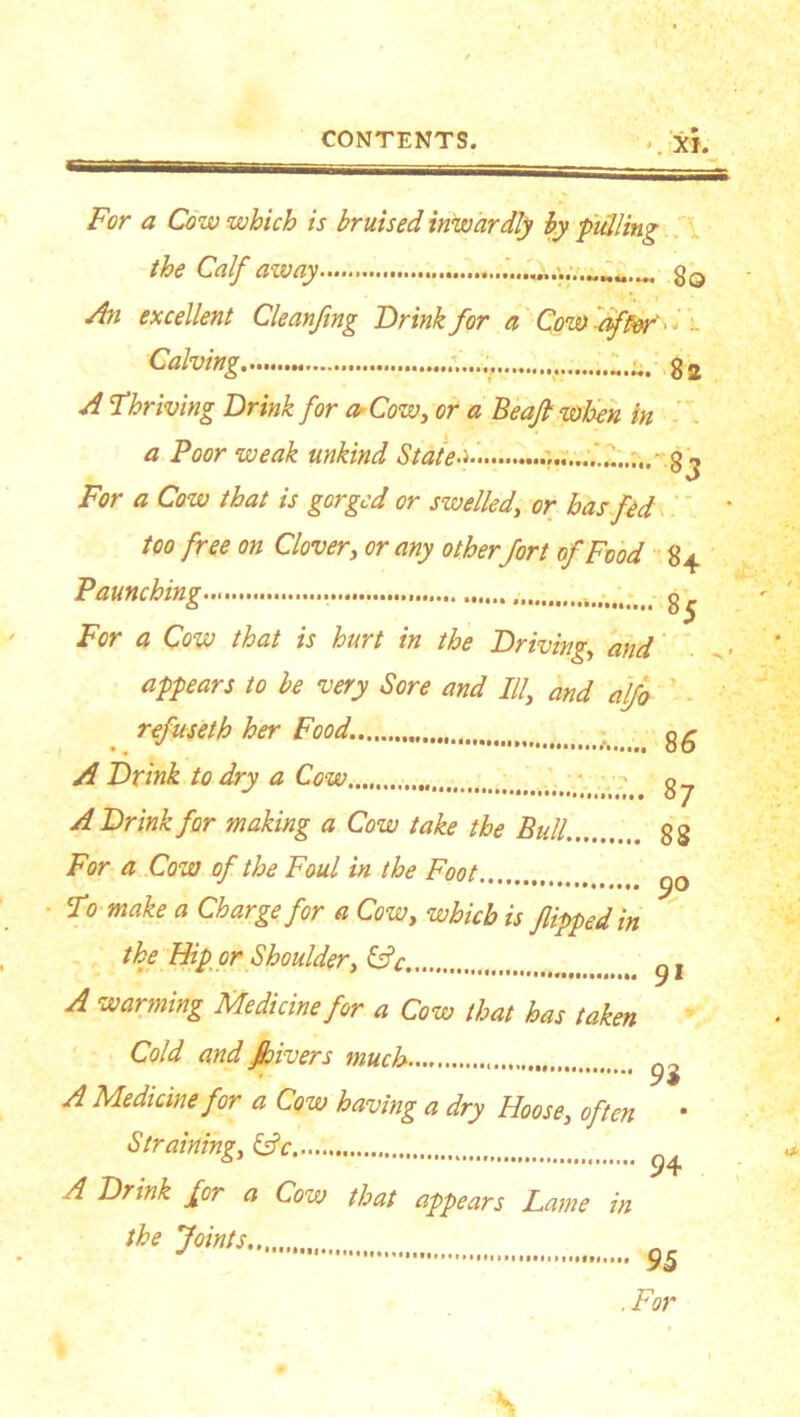 CONTENTS. xi.
For a Cow which is bruised inwardly by pulling
the Calf away................................................ 80
An excellent Cleanſing Drink for a Cow after
Calving........................................................ 82
A Thriving Drink for a Cow, or a Beaſt when in
a Poor weak unkind State............................. 83
For a Cow that is gorged or swelled, or has fed
too free on Clover, or any other ſort of Food 84
Paunching..................................................... 85
For a Cow that is hurt in the Driving, and
appears to be very Sore and Ill, and alſo
refuseth her Food........................................ 86
A Drink to dry a Cow...................................... 87
A Drink for making a Cow take the Bull......... 88
For a Cow of the Foul in the Foot.................... 90
To make a Charge for a Cow, which is ſlipped in
the Hip or Shoulder, &c................................ 91
A warming Medicine for a Cow that has taken
Cold and ſhivers much................................. 93
A Medicine for a Cow having a dry Hoose, often
Straining, &c................................................ 94
A Drink for a Cow that appears Lame in
the Joints..................................................... 95
For